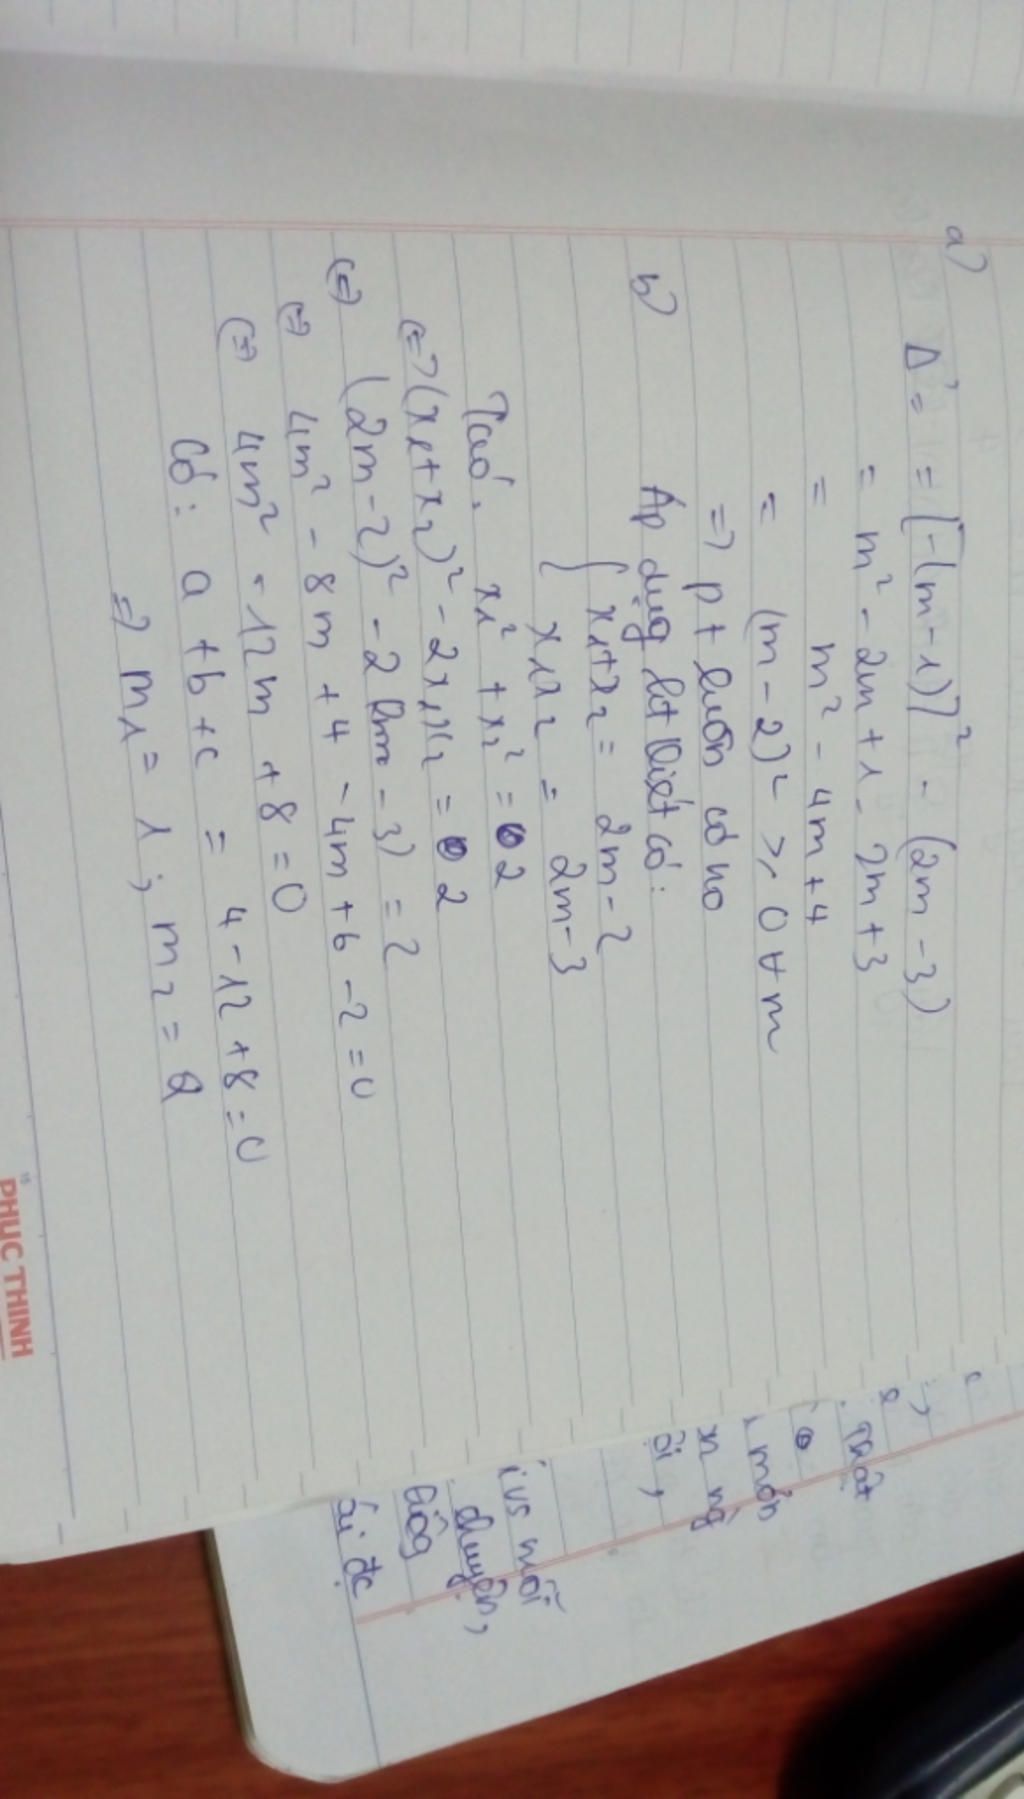 a)
Δ' = = [-(m-1)]² - (2m-3)
= m² - 2m + 1 - 2m + 3
= m² - 4m + 4
= (m-2)² ≥ 0 ∀ m
=> pt luôn có no
b) Áp dụg hệ thức Viét có:
{ x₁+x₂ = 2m-2
x₁x₂ = 2m-3
Ta có. x₁² + x₂² = 2
<=> (x₁+x₂)² - 2x₁x₂ = 2
(=) (2m-2)² - 2(2m-3) = 2
(=) 4m² - 8m + 4 - 4m + 6 - 2 = 0
(=) 4m² - 12m + 8 = 0
Có: a+b+c = 4-12+8=0
=> m₁ = 1; m₂ = 2
PHUC THINH
Thật
môn
x ng
ôi,
vs mỗi
chuyện,
ái đc